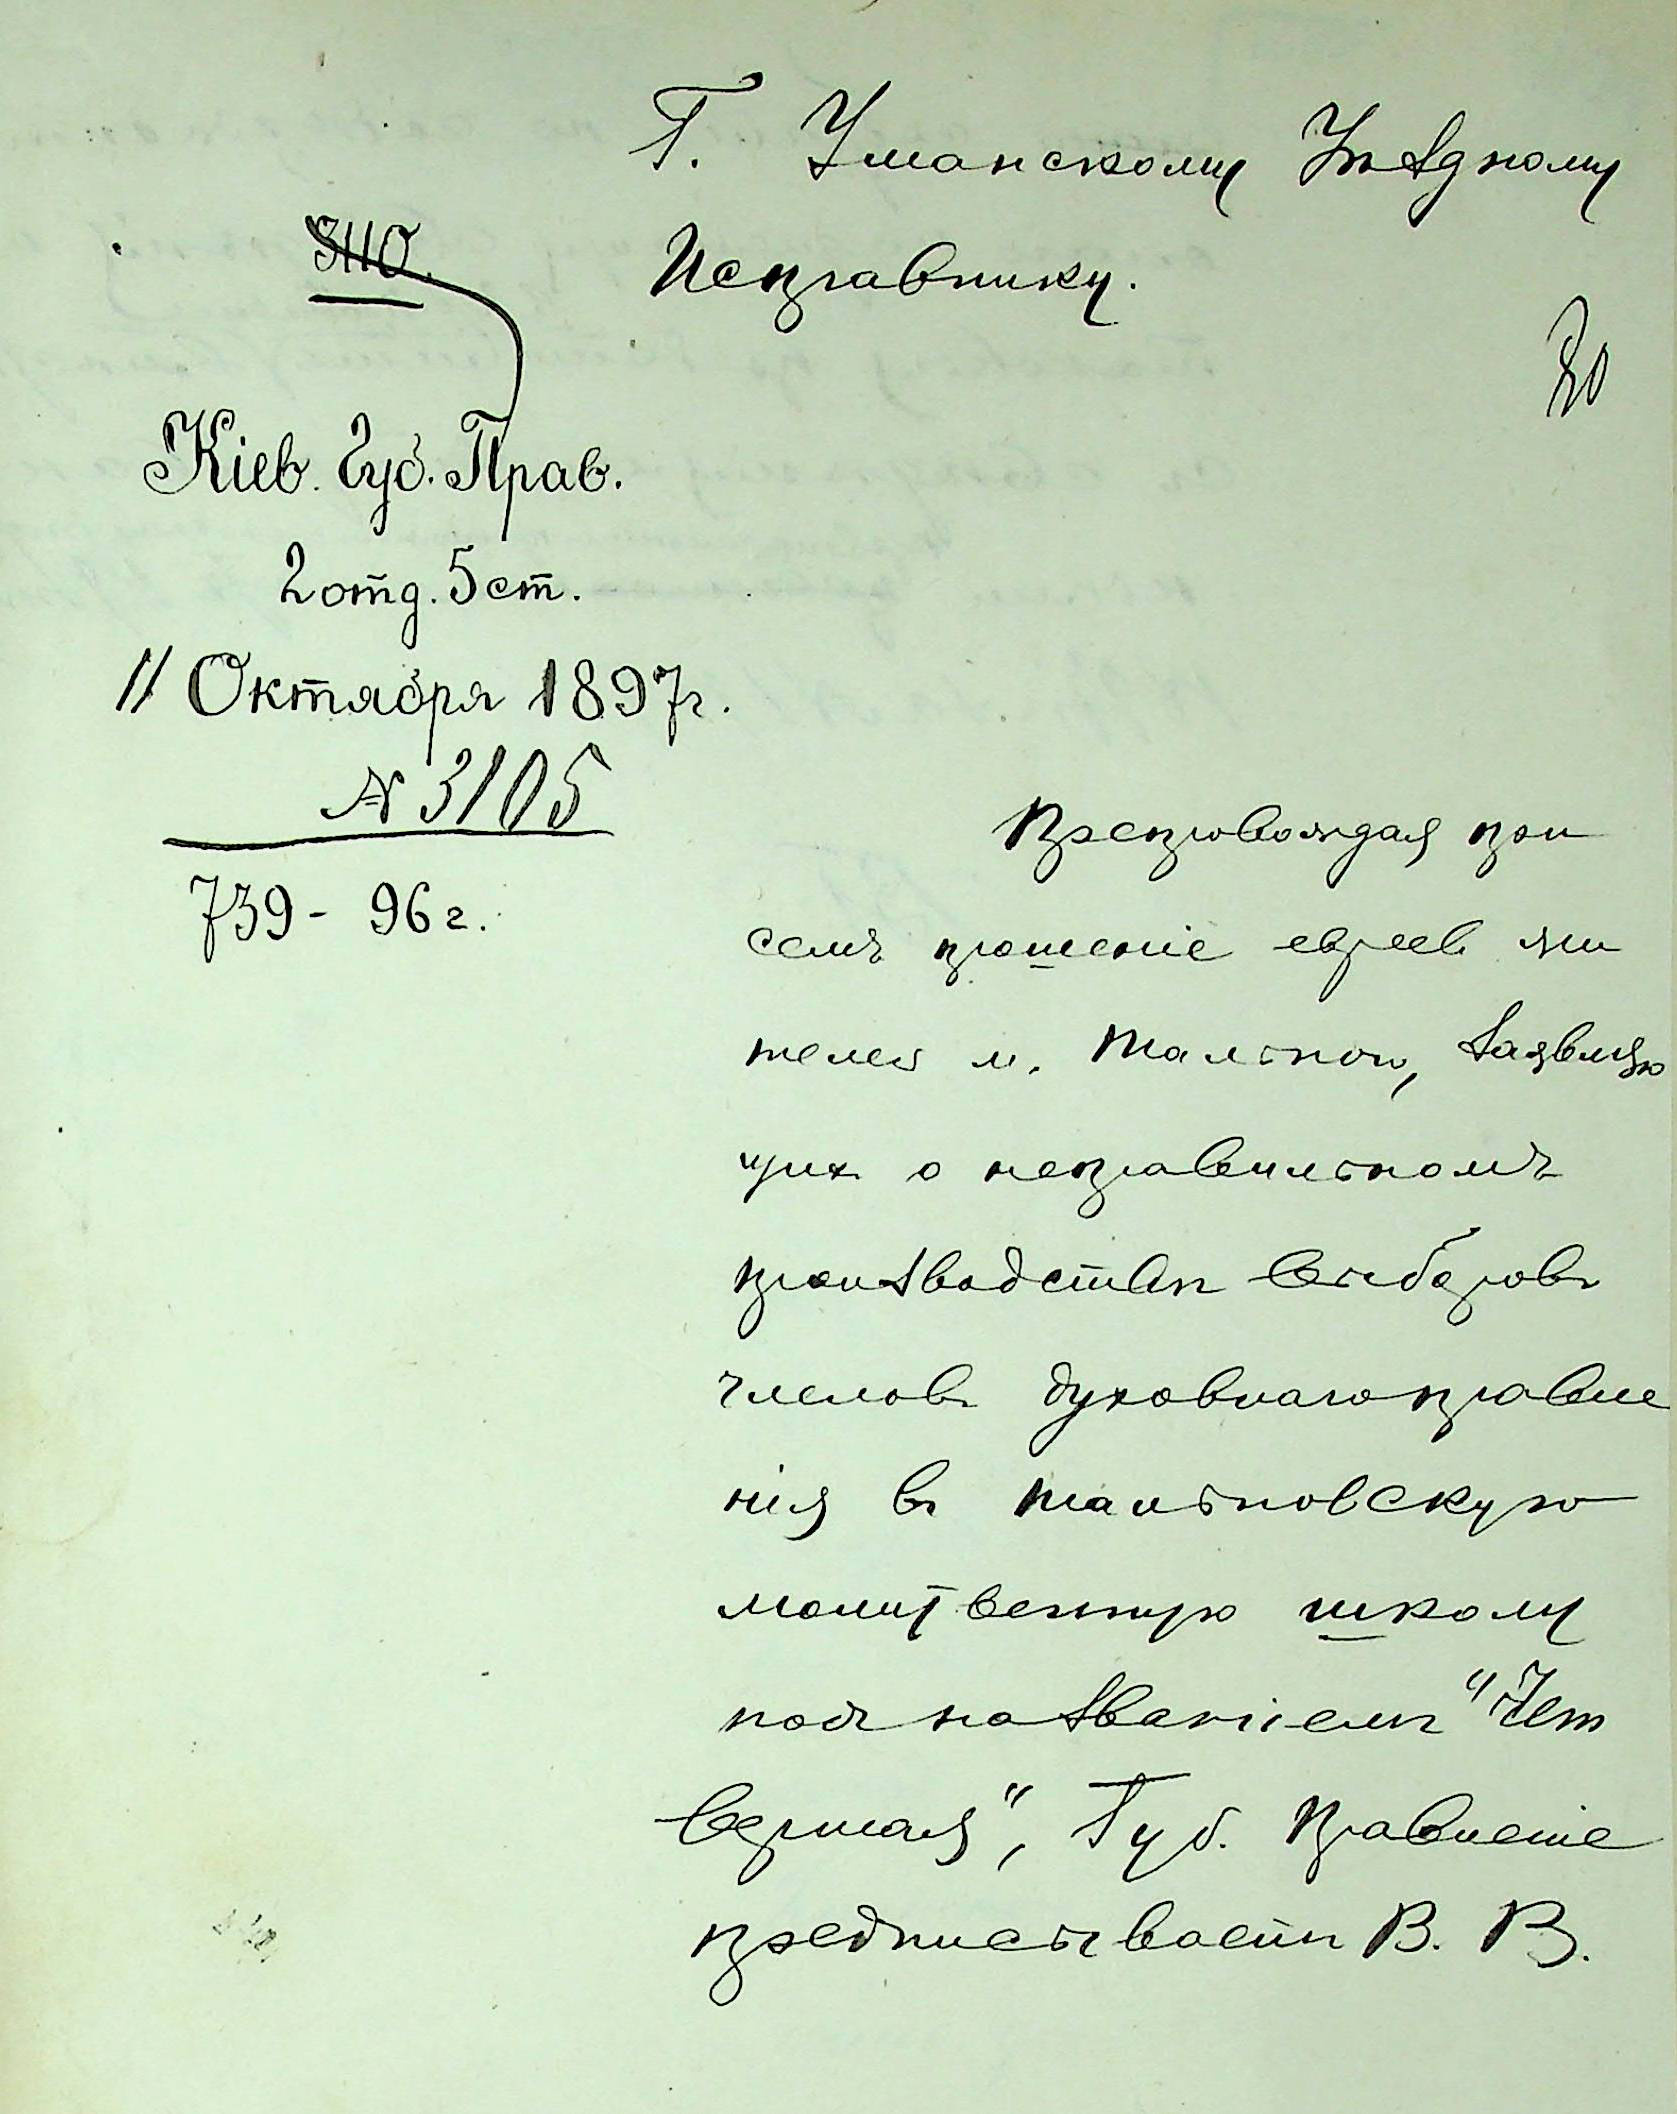 Г. Уманскому Уѣздному
Исправнику.
20
Кіев. Губ. Прав.
2 отд. 5 ст.
11 Октября 1897 г.
№ 3105
739 - 96 г.
Препровождая при
семъ прошеніе евреев жи
телей м. Тального, заявляю
щих о неправильномъ
производствѣ выборовъ
членовъ духовнаго правле
нія въ тальновскую
молитвенную школу
подъ названіемъ "Чет
вертая", Губ. Правленіе
предписываетъ В. В.